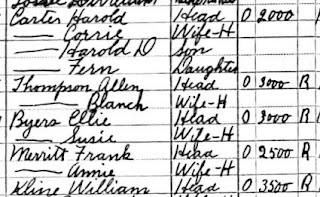 Carter Harold Head O 2000
— Corrie Wife-H
— Harold D Son
— Fern Daughter
Thompson Allen Head O 3000 R
— Blanch Wife-H
Byers Ellie Head O 3000 R
— Susie Wife-H
Merritt Frank Head O 2500 R
— Annie Wife-H
Kline William Head O 3500 R